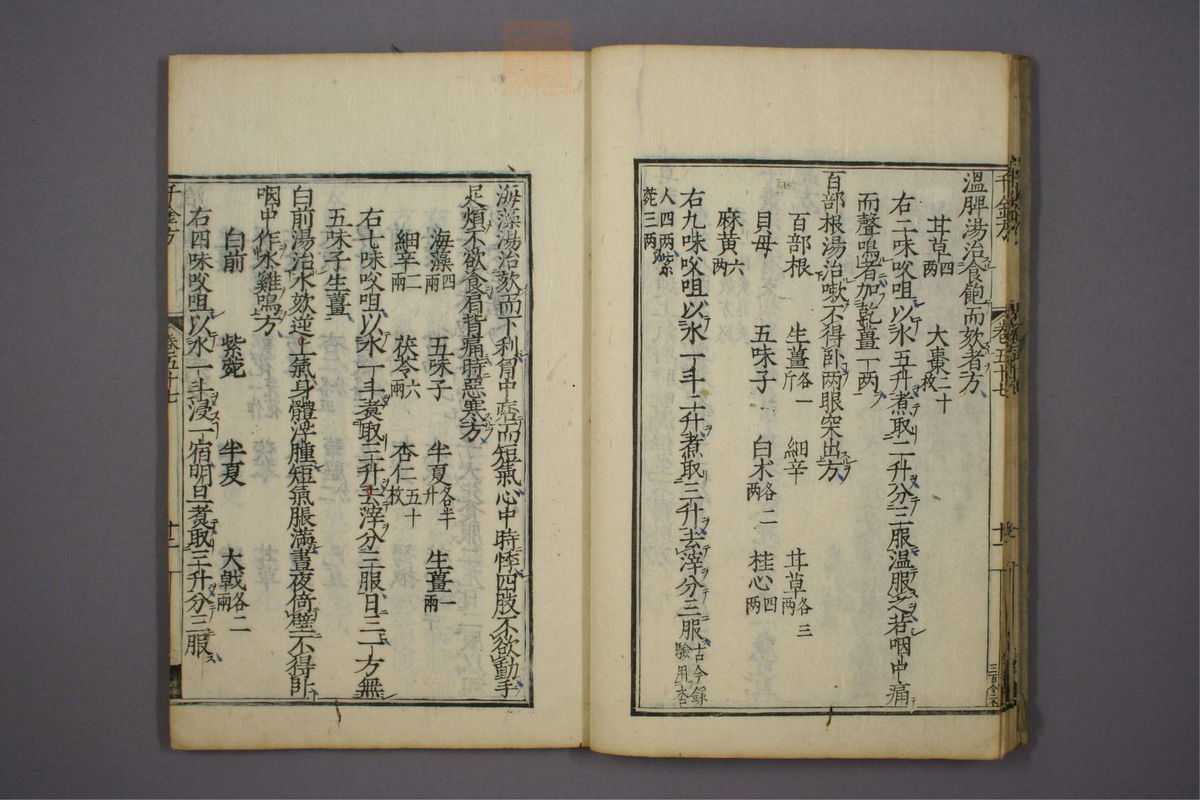 溫脾湯治食飽而欬者方
甘草四兩 大棗二十枚
右二味㕮咀以水五升煮取二升分三服溫服之若咽中痛
而聲鳴者加乾薑一兩
百部根湯治嗽不得卧兩眼突出方
百部根 生薑各一斤 細辛 甘草各三兩
貝母 五味子 白朮各二兩 桂心四兩
麻黃六兩
右九味㕮咀以水一斗二升煮取三升去滓分三服古今錄驗用杏
人四兩紫菀三兩
海藻湯治欬而下利胷中痞而短氣心中時悸四肢不欲動手
足煩不欲食肩背痛時惡寒方
海藻四兩 五味子 半夏各半升 生薑一兩
細辛二兩 茯苓六兩 杏仁五十枚
右七味㕮咀以水一斗煮取三升去滓分三服日三一方無
五味子生薑
白前湯治水欬逆上氣身體浮腫短氣脹滿晝夜倚壁不得卧
咽中作水雞鳴方
白前 紫菀 半夏 大戟各二兩
右四味㕮咀以水一斗浸一宿明旦煮取三升分三服
千金方 卷五十七 十二